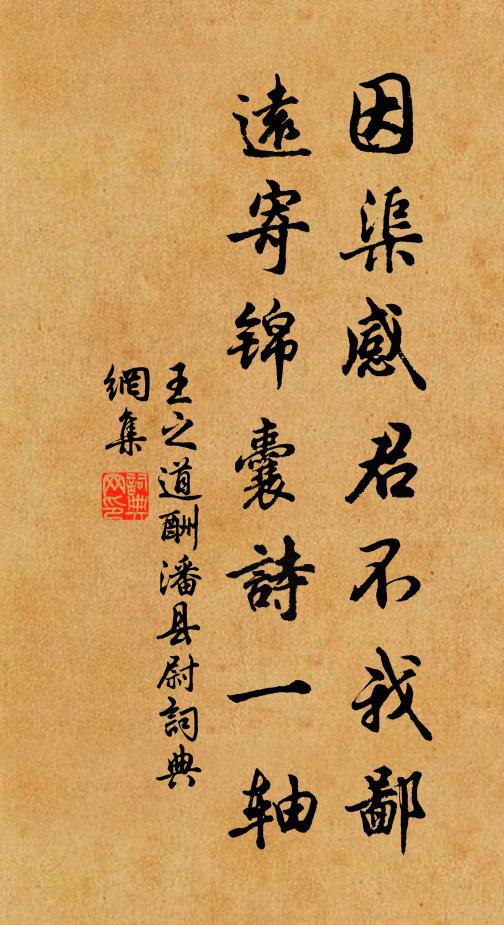 因渠感君不我鄙
遠寄锦囊詩一轴
王之道酬潘县尉詞典
網集
詞典网印